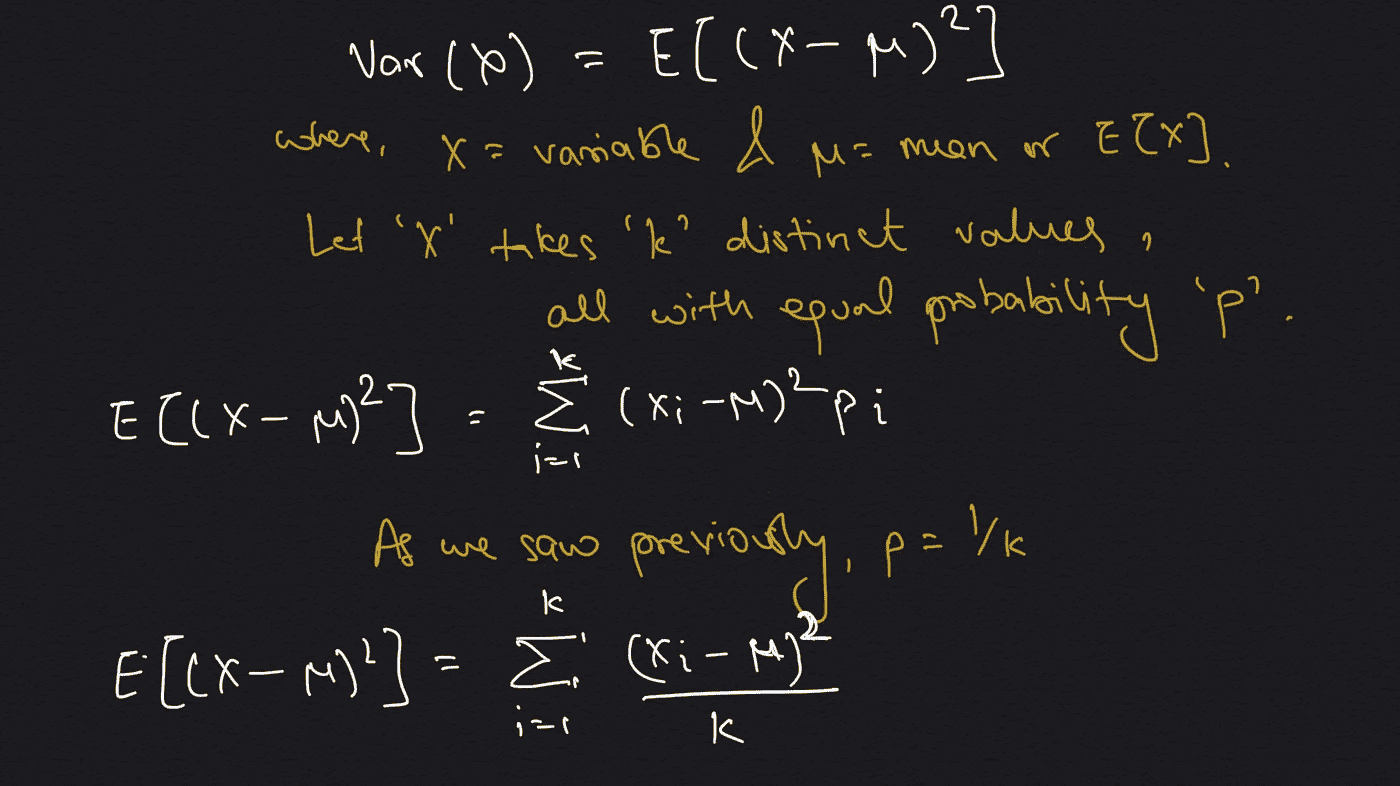 Var(X) = E[(X-μ)²]
where, X = variable & μ = mean or E[X].
Let 'X' takes 'k' distinct values,
all with equal probability 'p'.
E[(X-μ)²] = k Σ i=1 (xi-μ)² pi
As we saw previously, p = 1/k
E[(X-μ)²] = k Σ i=1 (xi-μ)² / k